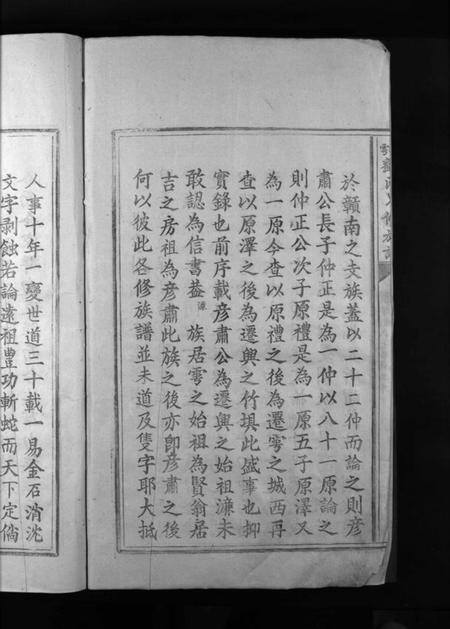 於贛南之支族蓋以二十二仲而論之則彥
肅公長子仲正是為一仲以八十一原論之
則仲正公次子原禮是為一原五子原澤又
為一原今查以原禮之後為遷雩之城西再
查以原澤之後為遷興之竹填此盛事也抑
實錄也前序載彥肅公為遷興之始祖濂未
敢認為信書蓋濂族居雩之始祖為賢翁居
吉之房祖為彥肅此族之後亦卽彥肅之後
何以彼此各修族譜並未道及隻字耶大抵
人事十年一變世道三十載一易金石消沈
文字剥蝕若論遠祖豊功斬蛇而天下定倘